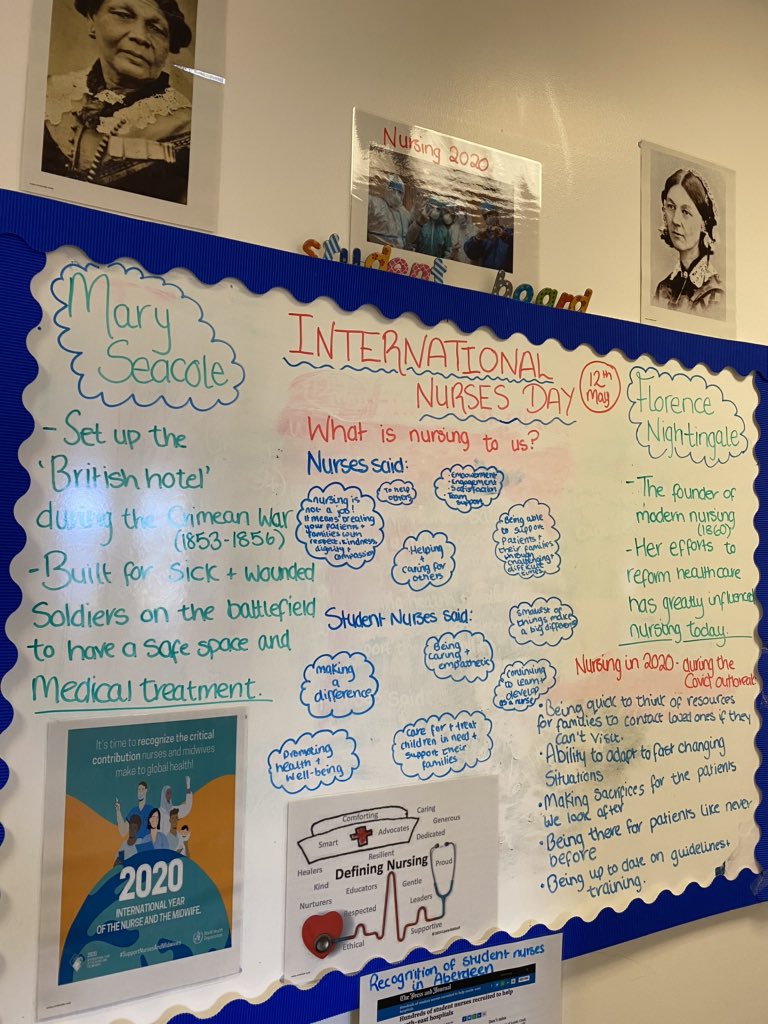 Nursing 2020
Student board
Mary
Seacole
- Set up the
'British hotel'
during the Crimean War
(1853-1856)
- Built for sick + wounded
Soldiers on the battlefield
to have a safe space and
Medical treatment.
INTERNATIONAL
NURSES DAY
12th
May
What is nursing to us?
Nurses said:
nursing is
not a job!
it means treating
your patients +
families with
respect, kindness,
dignity +
compassion
To help
others
- Empowerment
- Engagement
- Satisfaction
- Team
support
Helping
+
caring for
others
Being able
to support
Patients +
their families
through
challenging +
difficult
times
Student Nurses said:
Smallest of
things make
a big difference
making
a
difference
Being
caring +
empathetic
continuing
to learn +
develop
as a nurse
Promoting
health +
well-being
care for + treat
children in need +
support their
families
Florence
Nightingale
- The founder of
modern nursing
(1860)
- Her efforts to
reform healthcare
has greatly influenced
nursing today.
Nursing in 2020- during the
Covid outbreak
• Being quick to think of resources
for families to contact loved ones if they
can't visit.
• Ability to adapt to fast changing
Situations
• Making Sacrifices for the patients
we look after
• Being there for patients like never
before
• Being up to date on guidelines +
training.
It's time to recognize the critical
contribution nurses and midwives
make to global health!
2020
INTERNATIONAL YEAR
OF THE NURSE AND THE MIDWIFE.
#SupportNursesAndMidwives
World Health
Organization
Comforting
Caring
Smart
Advocates
Generous
Dedicated
Resilient
Healers
Defining Nursing
Proud
Kind
Educators
Gentle
Nurturers
Respected
Leaders
Ethical
Supportive
Recognition of student nurses
in Aberdeen
The Press and Journal
Hundreds of student nurses recruited to help
north-east hospitals